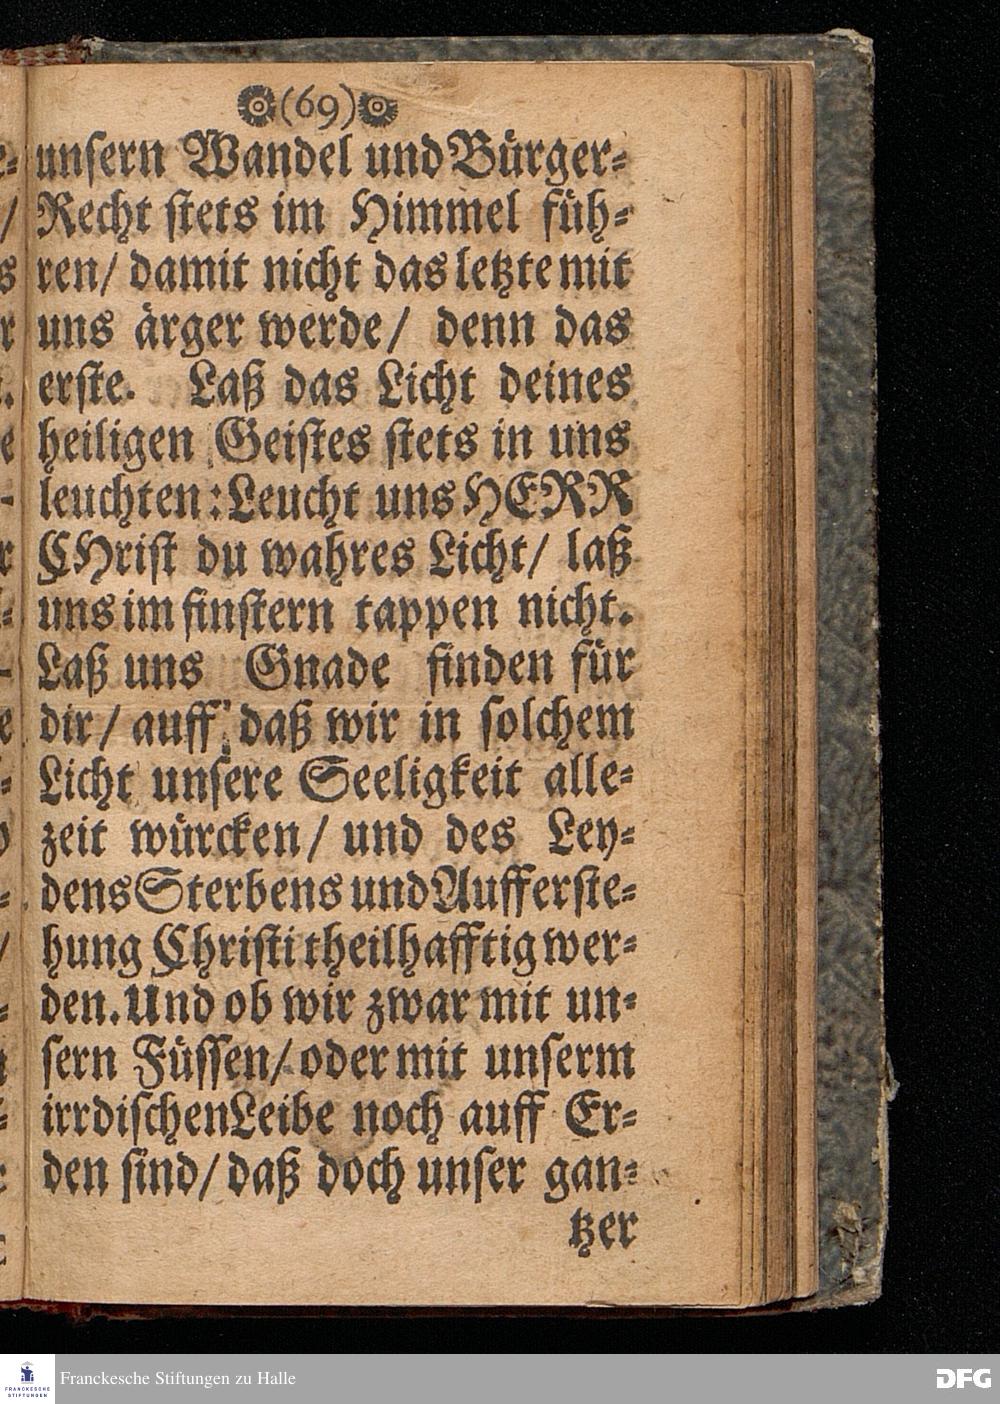 (69)
unſern Wandel und Bürger⸗
Recht ſtets im Himmel füh⸗
ren/ damit nicht das letzte mit
uns ärger werde/ denn das
erſte. Laß das Licht deines
heiligen Geiſtes ſtets in uns
leuchten: Leucht uns HERR
CHriſt du wahres Licht/ laß
uns im finſtern tappen nicht.
Laß uns Gnade finden für
dir/ auff daß wir in ſolchem
Licht unſere Seeligkeit alle⸗
zeit würcken/ und des Ley⸗
dens Sterbens und Aufferſte⸗
hung Chriſti theilhafftig wer⸗
den. Und ob wir zwar mit un⸗
ſern Füſſen/ oder mit unſerm
irrdiſchen Leibe noch auff Er⸗
den ſind/ daß doch unſer gan⸗
tzer
FRANCKESCHE
STIFTUNGEN
Franckesche Stiftungen zu Halle
DFG